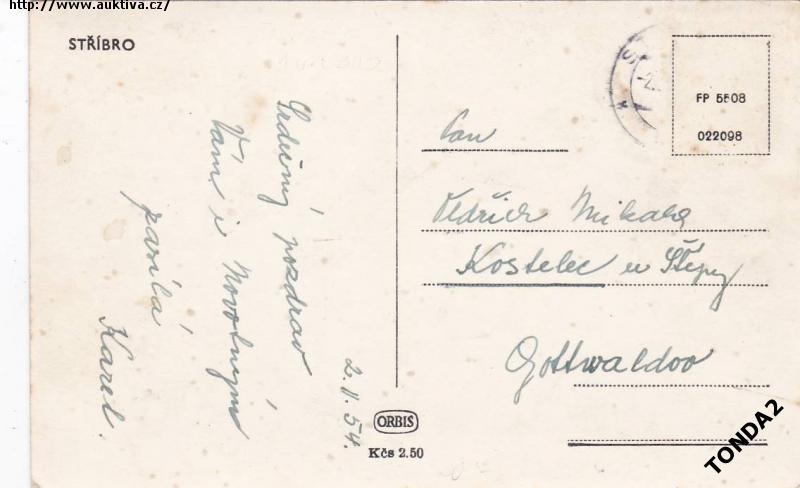 http://www.auktiva.cz/
STŘÍBRO
Srdečný pozdrav
Vám i Novotným
posílá
Karel.
2.II.54.
ORBIS
Kčs 2.50
FP 5508
022098
Pan
Oldřich Mikala
Kostelec u Štípy
Gottwaldov
TONDA2